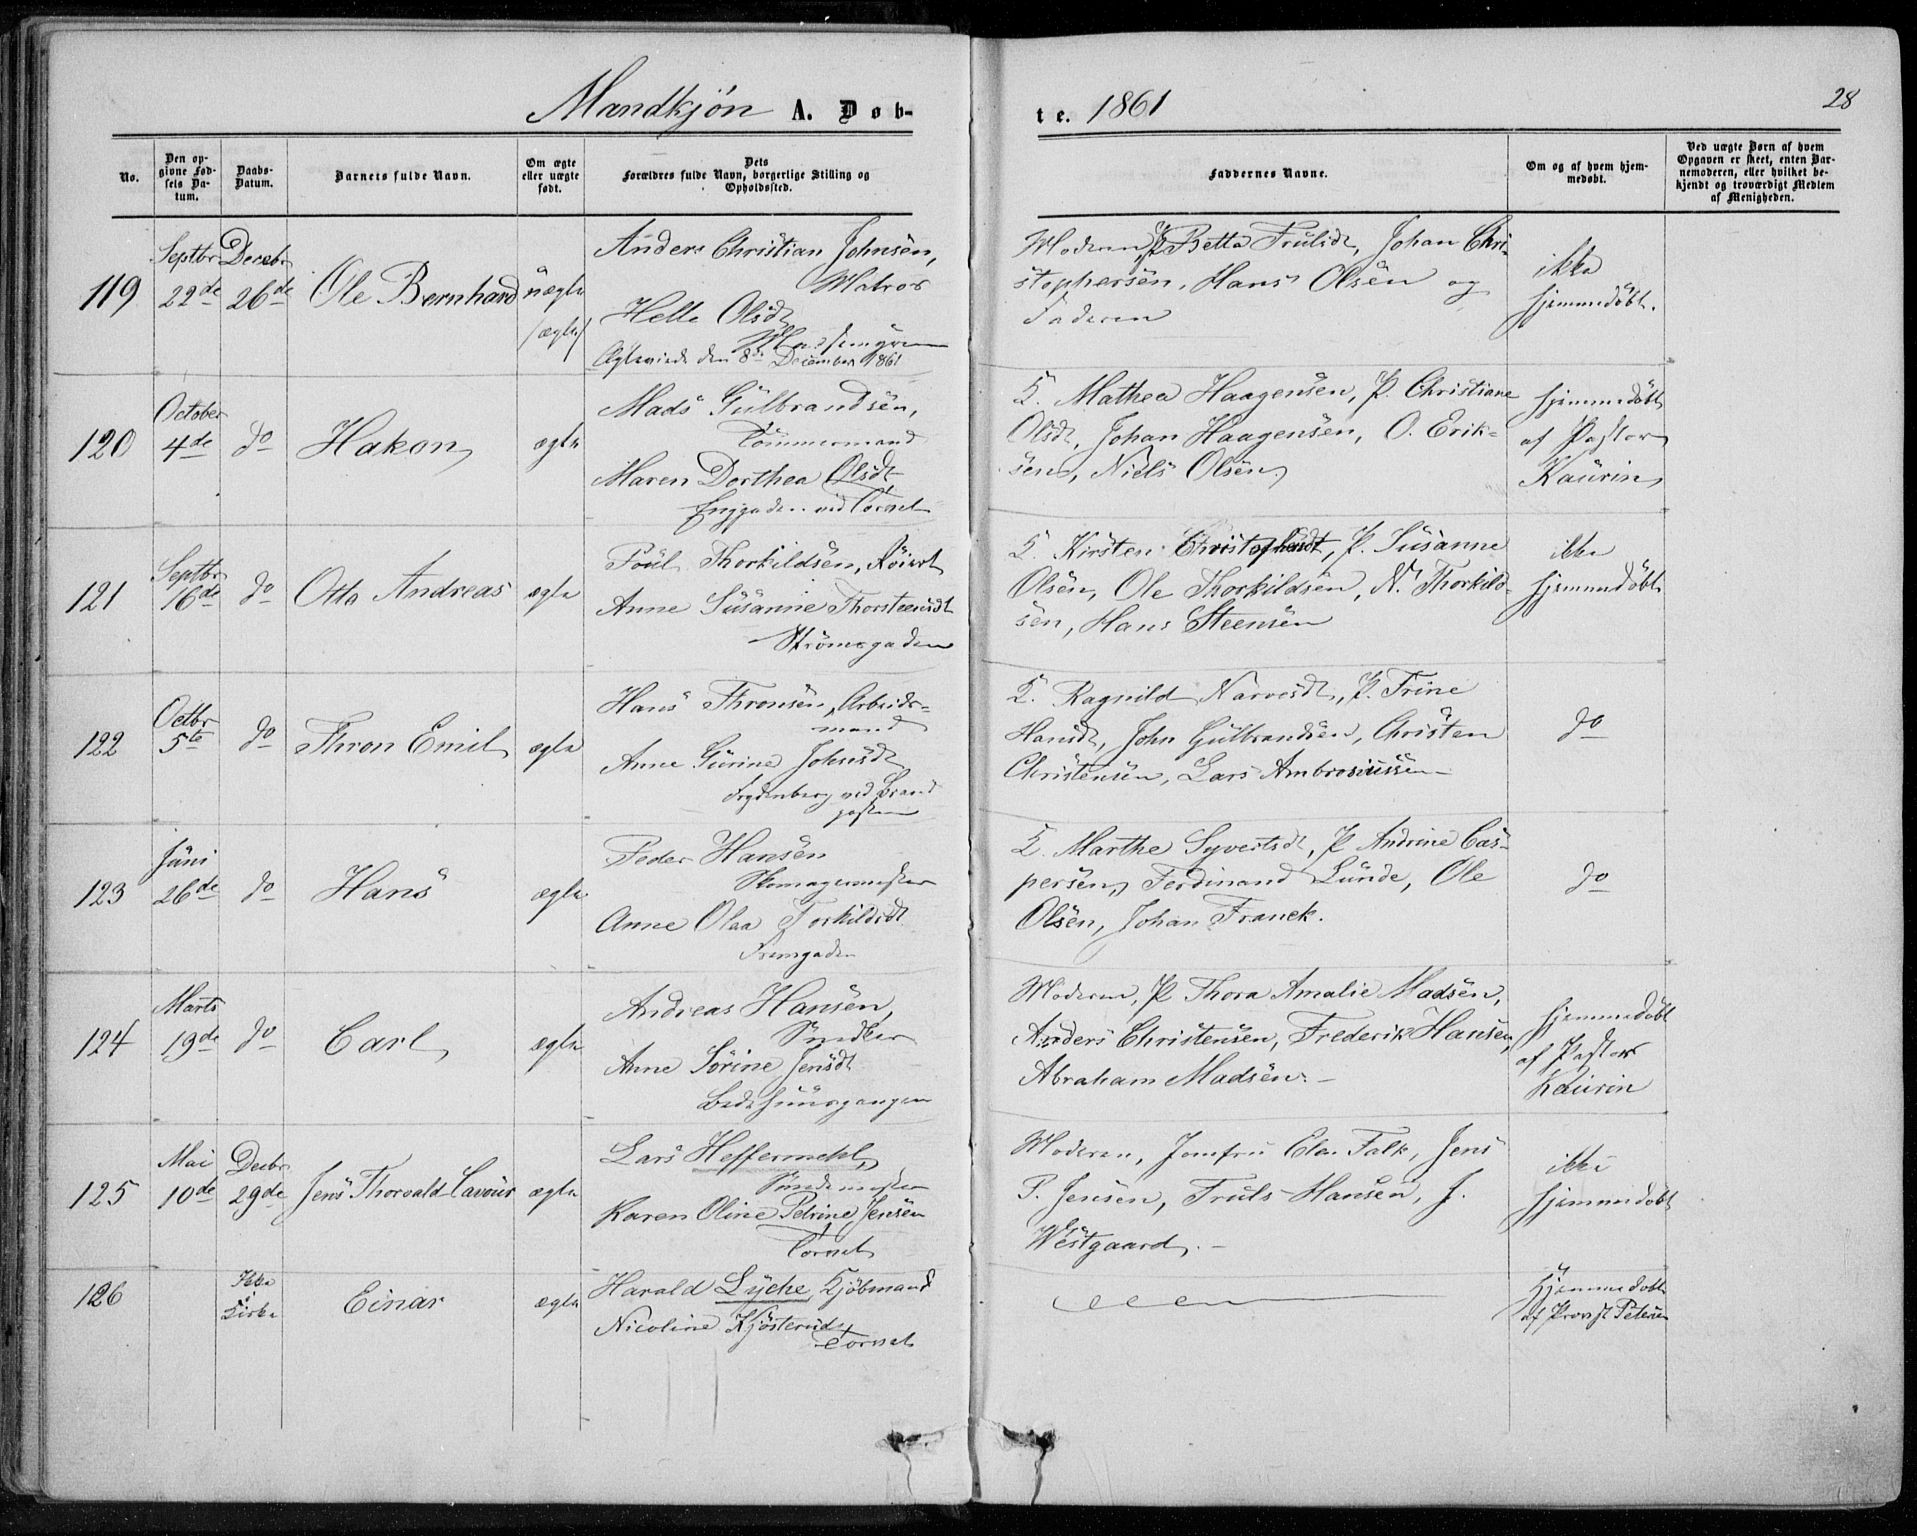 Mandkjön A. Døb-
te. 1861
28
No.
Den op-
givne Fød-
sels Da-
tum.
Daabs-
Datum.
Barnets fulde Navn.
Om ægte
eller uægte
født.
Dets
Forældres fulde Navn, borgerlige Stilling og
Opholdssted.
Faddernes Navne.
Om og af hvem hjem-
medøbt.
Ved uægte Børn af hvem
Opgaven er skeet, enten Bar-
nemoderen, eller hvilket be-
kjendt og troværdigt Medlem
af Menigheden.
119
Septbr
22de
Decebr
26de
Ole Bernhard
üægte
/ægte/
Anders Christian Johnsen,
Matros
Helle Olsdt
Ægteviede den 8de December 1861
Moderen, P. Betta Trulsdt, Johan Chri-
stophersen, Hans Olsen og
Faderen
ikke
hjemmedöbt.
120
October
4de
do
Hakon
ægte
Mads Gülbrandsen,
Tömmermand
Maren Dorthea Olsdt,
Enggaden ved Torvet
K. Mathea Haagensen, P. Christiane
Olsdt, Johan Haagensen, O. Erik-
sen, Niels Olsen.
hjemmedöbt
af Pastor
Kaurin
121
Septbr
16de
do
Otto Andreas
ægte
Poül Thorkildsen, Röiert
Anne Süsanne Thorsteensdt
Strömsgaden
K. Kirsten Christophersdt, P. Susanne
Olsen, Ole Thorkildsen, N. Thorkild-
sen, Hans Steensen
ikke
hjemmedöbt
122
Octbr
5te
do
Thron Emil
ægte
Hans Thronsen, Arbeids-
mand
Anne Sürine Johnsdt
Frydenberg ved Brand
posten
K. Ragnild Narvesdt, P. Trine
Hansdt, John Gülbrandsen, Christen
Christensen, Lars Ambrosiussen
do
123
Jüni
26de
do
Hans
ægte
Peder Hansen
Skomagermester
Anne Olaa Torkildsdt
Tverrgaden
K. Marthe Syvertsdt, P. Andrine Cas-
persen, Ferdinand Lünde, Ole
Olsen, Johan Franck.
do
124
Marts
19de
do
Carl
ægte
Andreas Hansen,
Snedker
Anne Sörine Jensdt
Bedehüüsgangen
Moderen, P. Thora Amalie Madsen,
Anders Christensen, Frederik Hansen,
Abraham Madsen. -
hjemmedöbt
af Pastor
Kaurin
125
Mai
10de
Decbr
29de
Jens Thorvald Cavour
ægte
Lars Heffermehl,
Karen Oline Petrine Jensen
Torvet
Moderen, Jomfru Elen Falk, Jens
P. Jensen, Truls Hansen, J.
Westgaard. -
ikke
hjemmedöbt
126
Ikke
i
Kirke
Einar
ægte
Harald Lyche, Kjöbmand
Nicoline Kjösterud
Torvet
Hjemmedöbt
af Provst Petersen